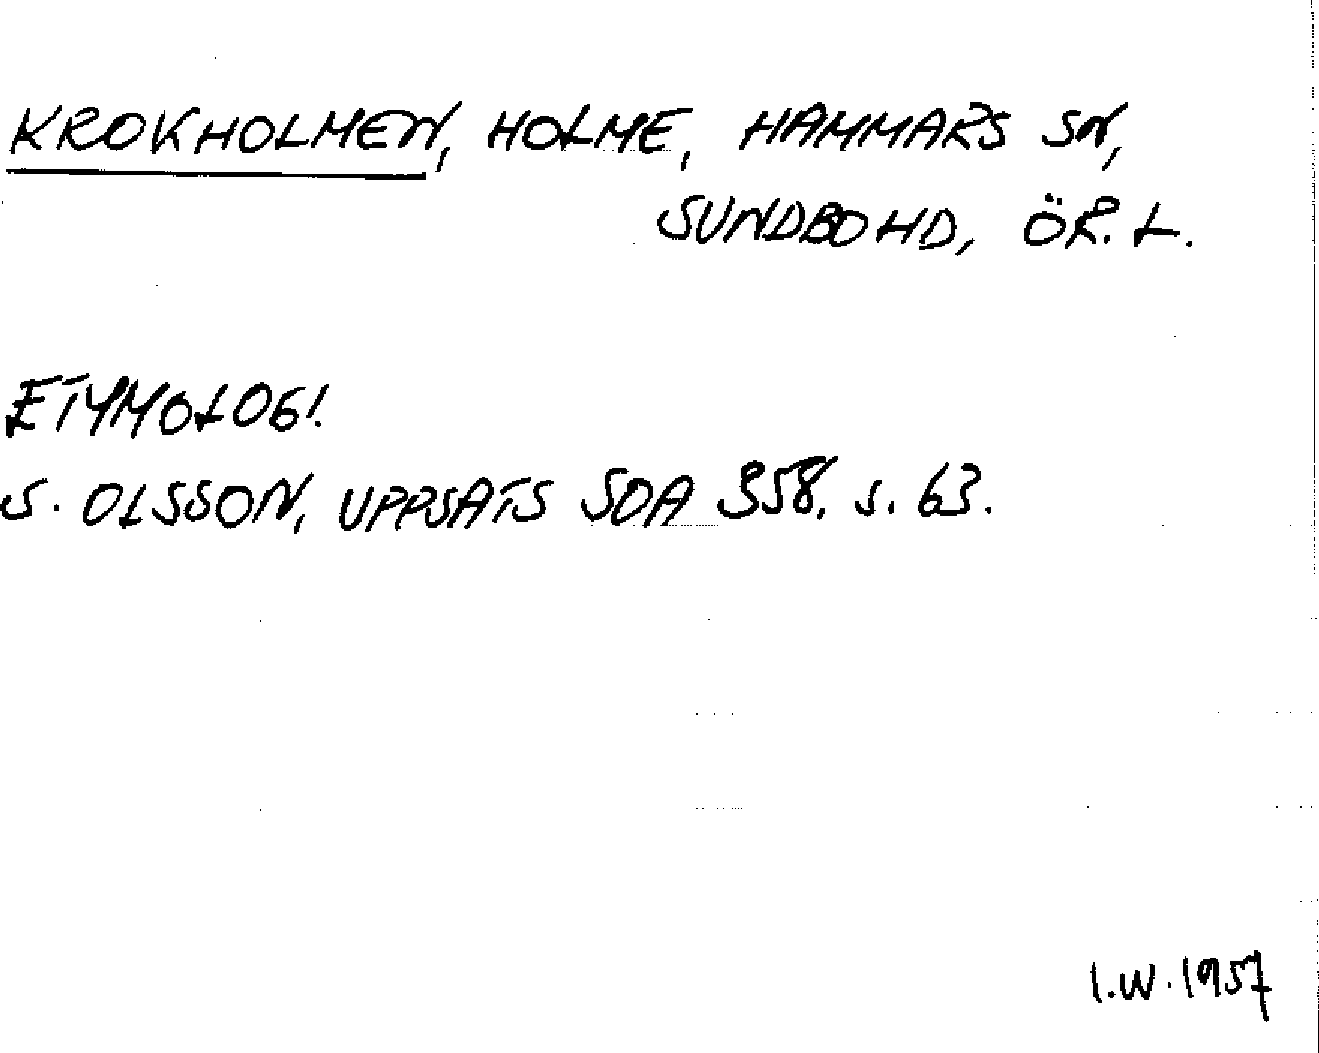 KROKHOLMEN, HOLME, HAMMARS SN,
SUNDBO HD, ÖR. L.
ETYMOLOGI.
S. OLSSON, UPPSATS SOA 358, S. 63.
I.W. 1957